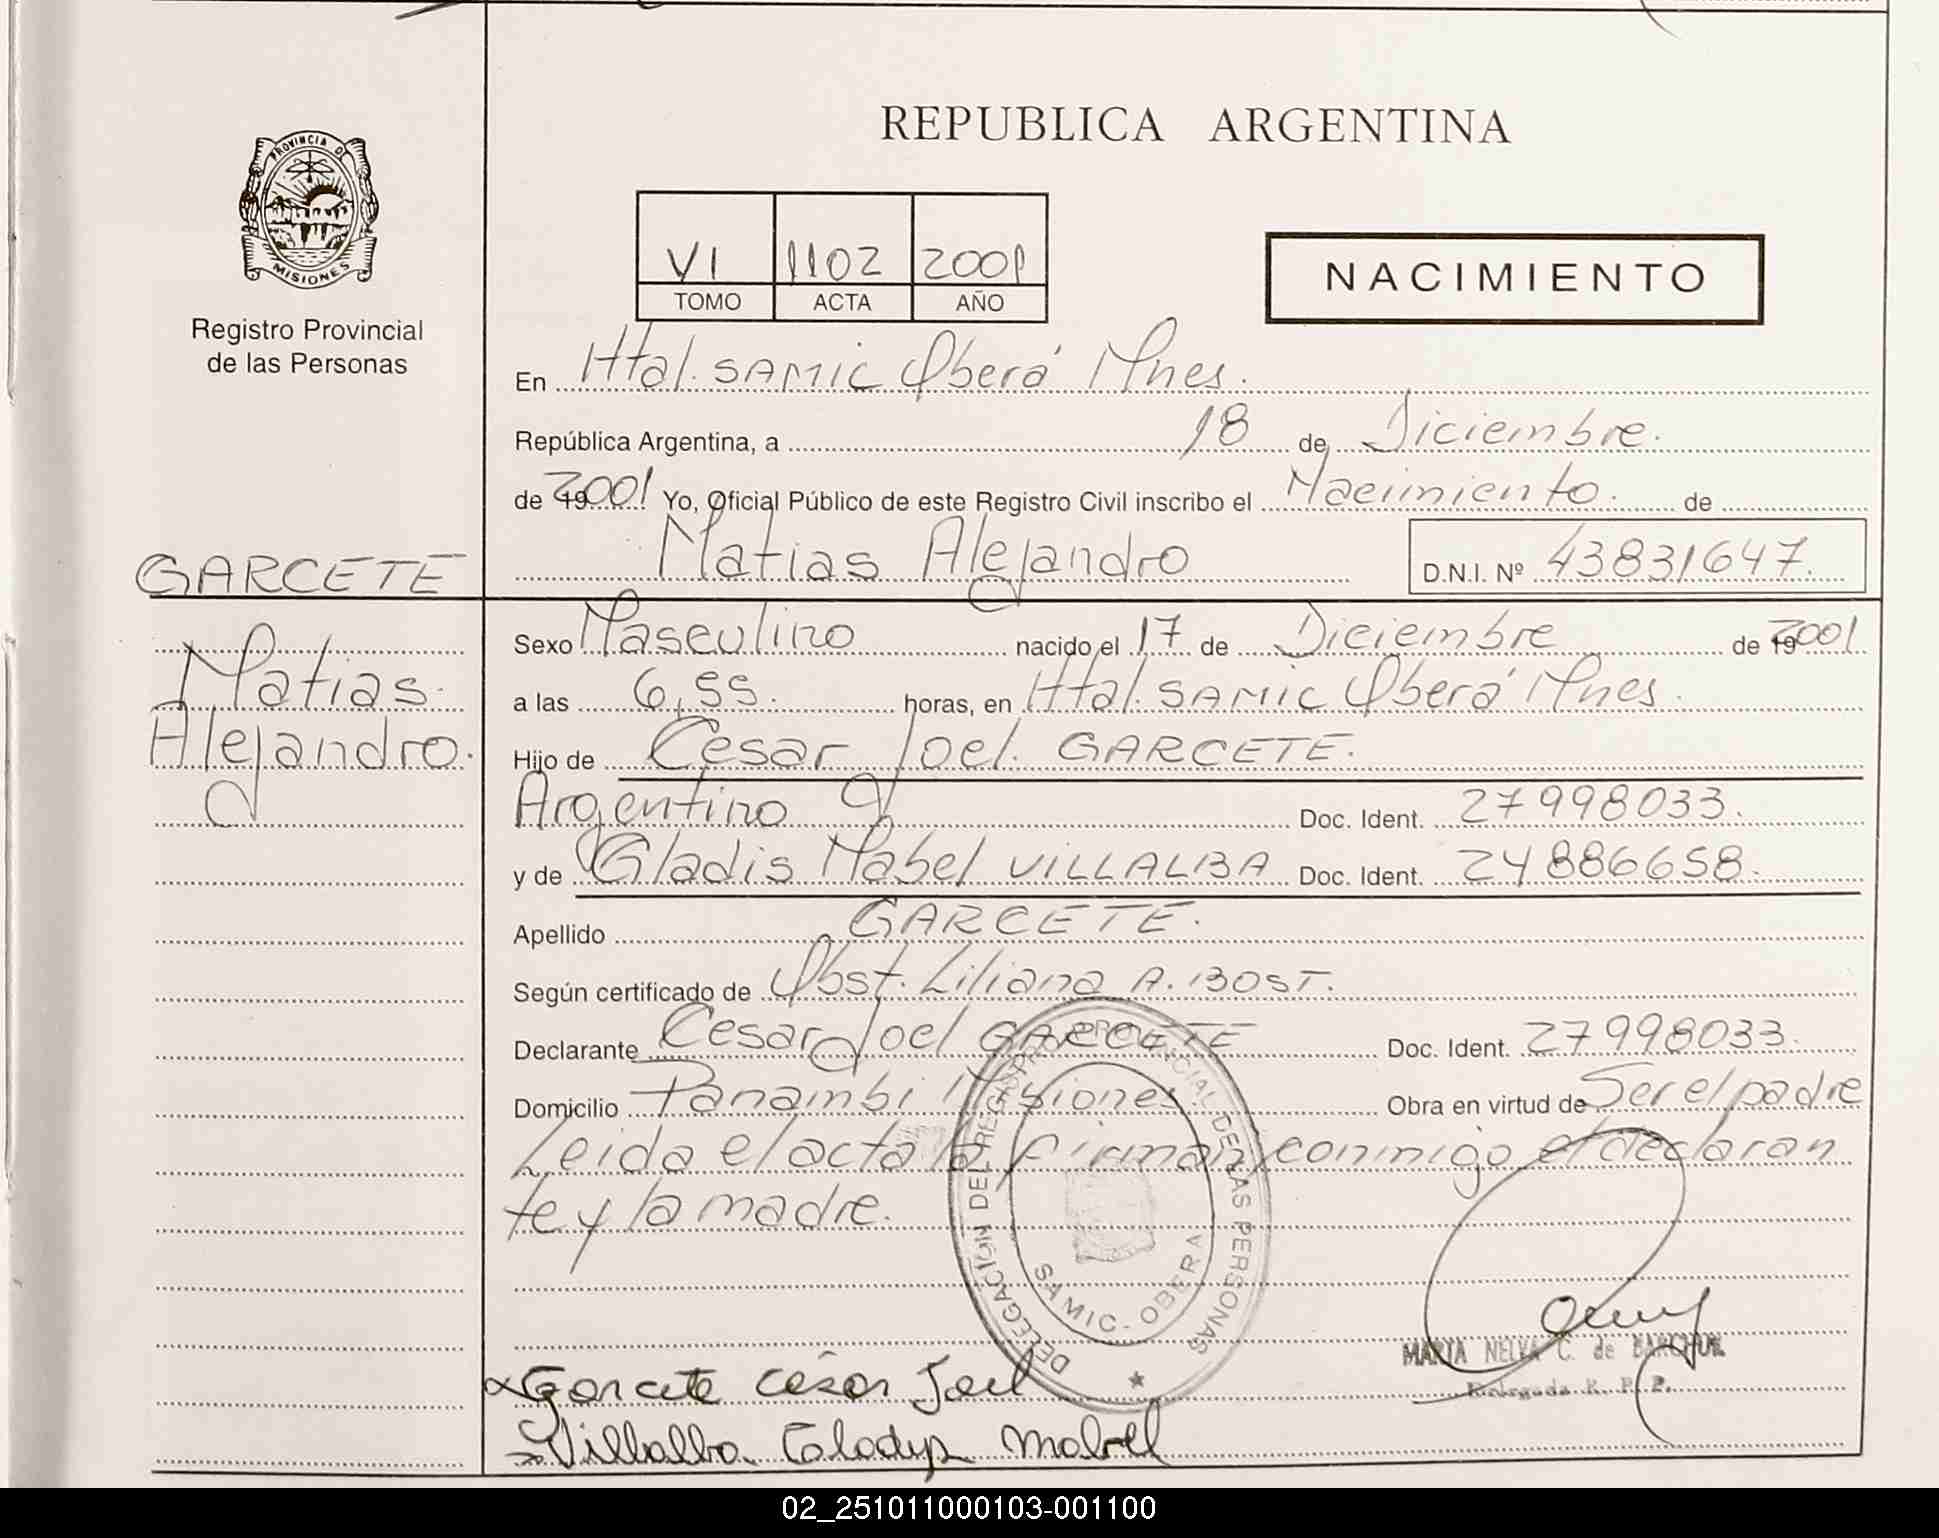 REPUBLICA ARGENTINA
PROVINCIA DE
MISIONES
Registro Provincial
de las Personas
VI 1102 2001
TOMO ACTA AÑO
NACIMIENTO
En Htal. SAMIC Oberá Mnes.
República Argentina, a 18 de Diciembre.
de 19 2001 Yo, Oficial Público de este Registro Civil inscribo el Nacimiento. de
Matias Alejandro D.N.I. Nº 43831647.
GARCETE
Matias
Alejandro.
Sexo Masculino nacido el 17 de Diciembre de 19 2001
a las 6,55. horas, en Htal. SAMIC Oberá Mnes.
Hijo de Cesar Joel. GARCETE.
Argentino Doc. Ident. 27998033.
y de Gladis Mabel VILLALBA Doc. Ident. 24886658.
Apellido GARCETE.
Según certificado de Obst. Liliana A. BOST.
Declarante Cesar Joel GARCETE Doc. Ident. 27998033.
Domicilio Panambi Misiones. Obra en virtud de Ser el padre
Leida el acta la firman conmigo el declaran
te y la madre.
DELEGACIÓN DEL REGISTRO PROVINCIAL DE LAS PERSONAS
SAMIC - OBERA
MARTA NELVA C. de
Delegada R. P. P.
Garcete César Joel
Villalba Gladys Mabel
02_251011000103-001100